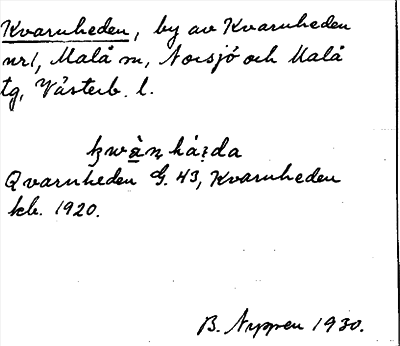 Kvarnheden, by av Kvarnheden
nr 1, Malå sn, Norsjö och Malå
tg, Västerb. l.
Qvarnheden G. 43, Kvarnheden
kb. 1920.
B. Nyppen 1930.